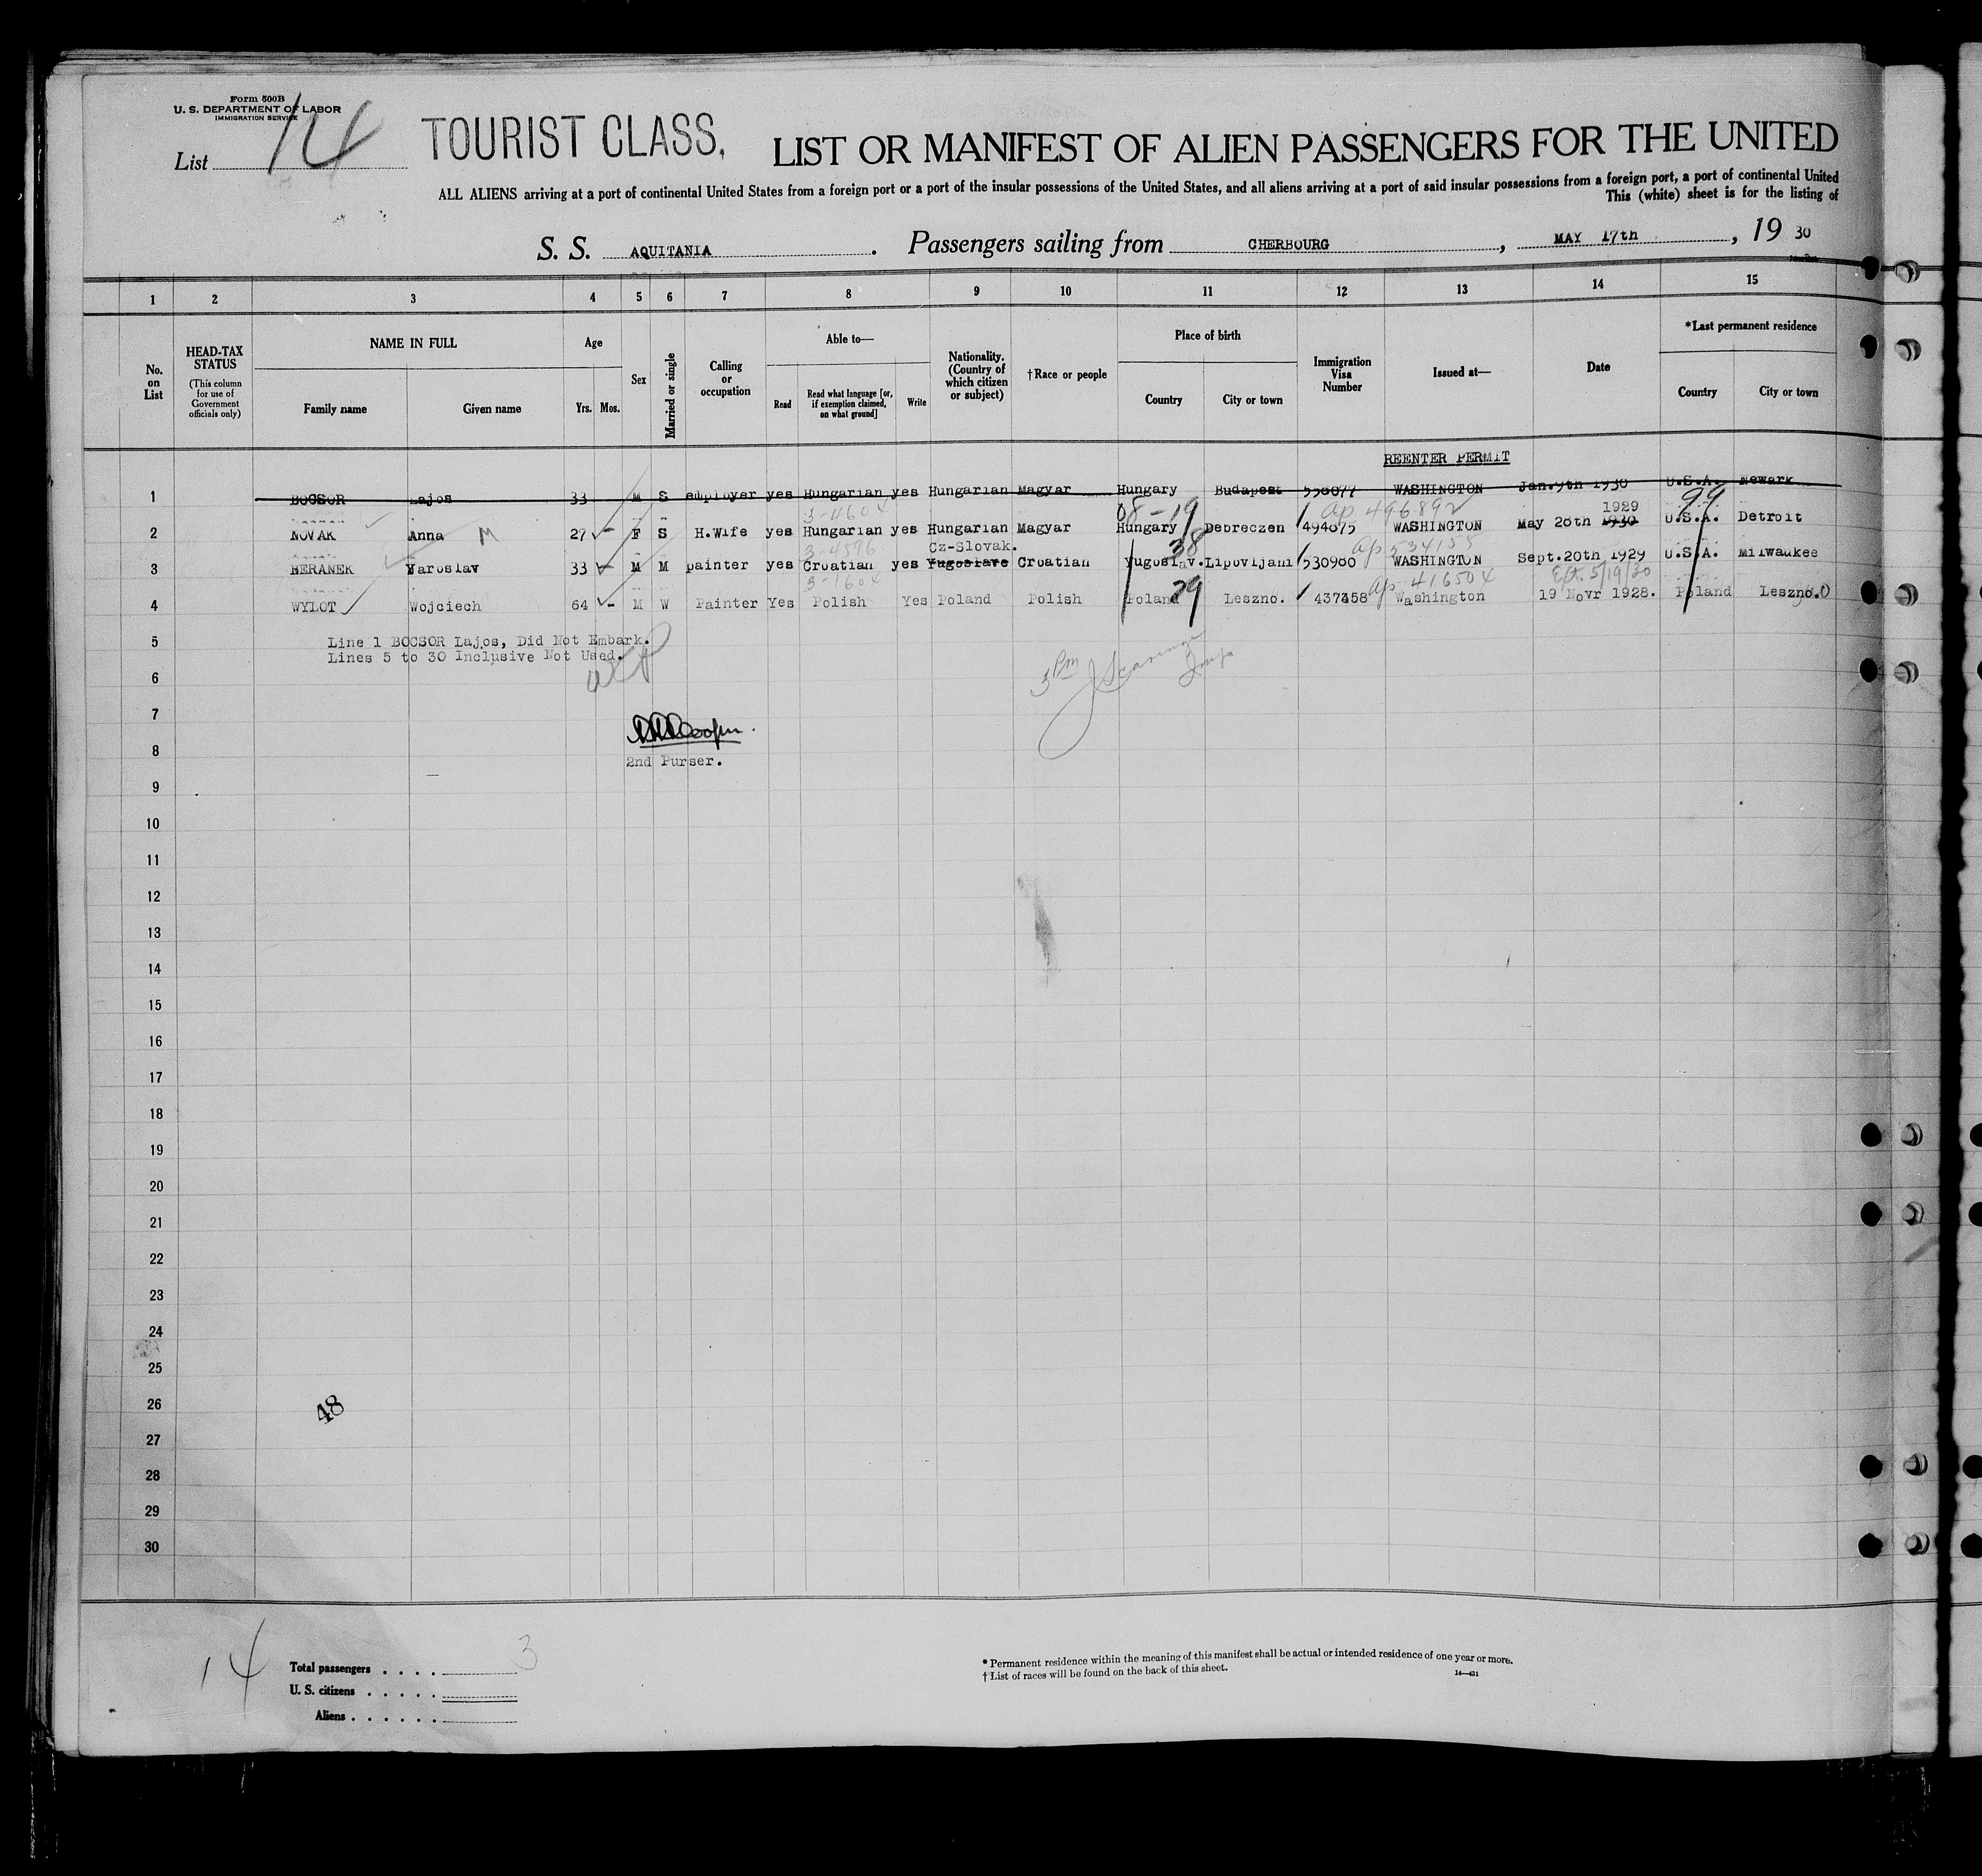 Form 500B
U. S. DEPARTMENT OF LABOR
IMMIGRATION SERVICE
List 14
TOURIST CLASS,
LIST OR MANIFEST OF ALIEN PASSENGERS FOR THE UNITED
ALL ALIENS arriving at a port of continental United States from a foreign port or a port of the insular possessions of the United States, and all aliens arriving at a port of said insular possessions from a foreign port, a port of continental United
This (white) sheet is for the listing of
S. S. AQUITANIA. Passengers sailing from CHERBOURG, MAY 17th, 19 30
1 2 3 4 5 6 7 8 9 10 11 12 13 14 15
No. on List
HEAD-TAX STATUS
(This column for use of Government officials only)
NAME IN FULL
Family name Given name
Age
Yrs. Mos.
Sex
Married or single
Calling or occupation
Able to—
Read
Read what language [or, if exemption claimed, on what ground]
Write
Nationality. (Country of which citizen or subject)
†Race or people
Place of birth
Country City or town
Immigration Visa Number
Issued at—
Date
*Last permanent residence
Country City or town
REENTER PERMIT
1 BOCSOR Lajos 33 M S employer yes Hungarian yes Hungarian Magyar Hungary Budapest 558077 WASHINGTON Jan.9th 1930 U.S.A. Newark
3-4604 08-19 ap 496892 1929 99
2 NOVAK Anna M 27 F S H.Wife yes Hungarian yes Hungarian Magyar Hungary Debreczen 494875 WASHINGTON May 28th 1930 U.S.A. Detroit
3-4596 Cz-Slovak. 38 ap 534158
3 BERANEK Yaroslav 33 M M painter yes Croatian yes Yugoslave Croatian Yugoslav. Lipovljani 530980 WASHINGTON Sept.20th 1929 U.S.A. Milwaukee
3-1604 29 ap 416504 Ext. 5/19/30
4 WYLOT Wojciech 64 - M W Painter Yes Polish Yes Poland Polish Poland Leszno. 437358 Washington 19 Novr 1928. Poland Leszno.
5 Line 1 BOCSOR Lajos, Did Not Embark.
Lines 5 to 30 Inclusive Not Used.
6
3 Pm
7
8
2nd Purser.
9
10
11
12
13
14
15
16
17
18
19
20
21
22
23
24
25
26
48
27
28
29
30
14
Total passengers . . . . 3
U. S. citizens . . . . .
Aliens . . . . . .
* Permanent residence within the meaning of this manifest shall be actual or intended residence of one year or more.
† List of races will be found on the back of this sheet.